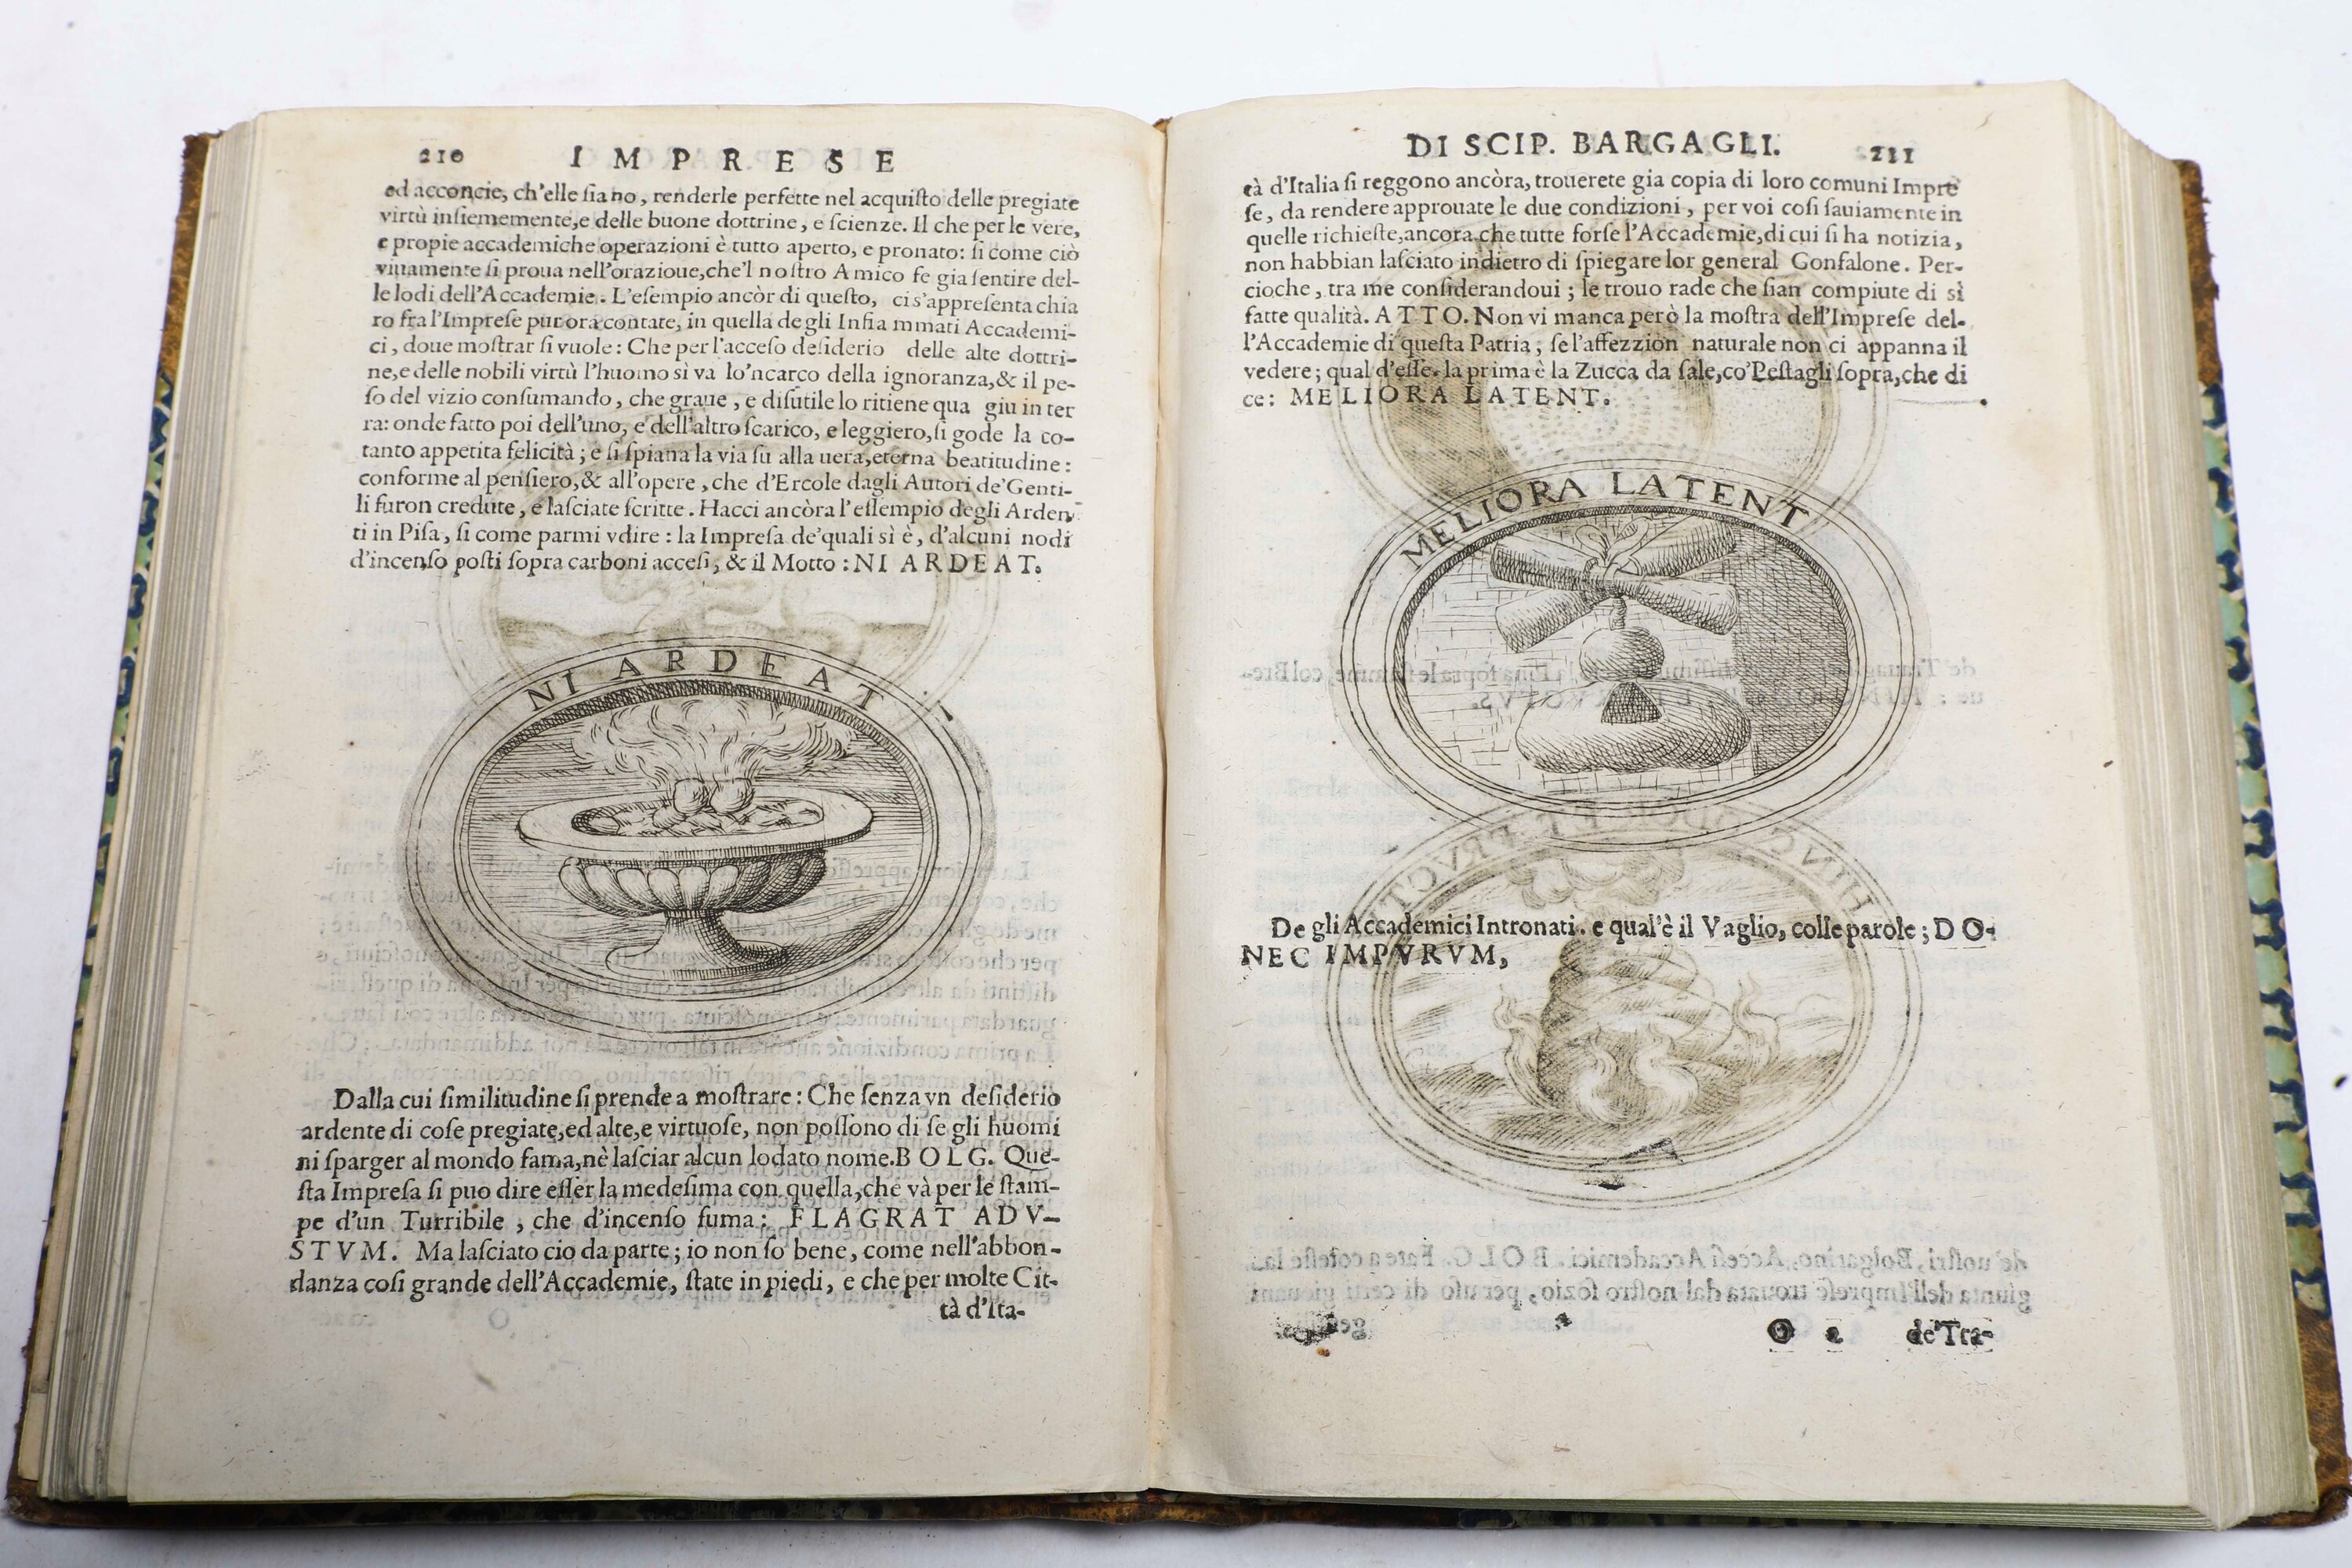 210 IMPRESE
ed acconcie, ch'elle siano, renderle perfette nel acquisto delle pregiate
virtù insiememente,e delle buone dottrine, e scienze. Il che per le vere,
e propie accademiche operazioni è tutto aperto, e pronato: si come ciò
viuamente si proua nell'orazioue,che'l nostro Amico fe gia sentire del-
le lodi dell'Accademie. L'esempio ancòr di questo, ci s'appresenta chia
ro fra l'Imprese pur ora contate, in quella degli Infiammati Accademi-
ci, doue mostrar si vuole: Che per l'acceso desiderio delle alte dottri-
ne,e delle nobili virtù l'huomo si va lo'ncarco della ignoranza,& il pe-
so del vizio consumando, che graue, e disutile lo ritiene qua giu in ter
ra: onde fatto poi dell'uno, e dell'altro scarico, e leggiero,si gode la co-
tanto appetita felicità; e si spiana la via su alla uera,eterna beatitudine:
conforme al pensiero,& all'opere, che d'Ercole dagli Autori de'Genti-
li furon credute, e lasciate scritte. Hacci ancòra l'essempio degli Arden,
ti in Pisa, si come parmi vdire: la Impresa de'quali sì è, d'alcuni nodi
d'incenso posti sopra carboni accesi, & il Motto: NI ARDEAT.
NI ARDEAT
Dalla cui similitudine si prende a mostrare: Che senza vn desiderio
ardente di cose pregiate,ed alte,e virtuose, non possono di se gli huomi
ni sparger al mondo fama,nè lasciar alcun lodato nome. BOLG. Que-
sta Impresa si puo dire esser la medesima con quella,che và per le stam-
pe d'un Turribile, che d'incenso fuma: FLAGRAT ADV-
STVM. Ma lasciato cio da parte; io non so bene, come nell'abbon-
danza cosi grande dell'Accademie, state in piedi, e che per molte Cit-
tà d'Ita-
DI SCIP. BARGAGLI. 211
tà d'Italia si reggono ancòra, trouerete gia copia di loro comuni Impre
se, da rendere approuate le due condizioni, per voi cosi sauiamente in
quelle richieste,ancora che tutte forse l'Accademie,di cui si ha notizia,
non habbian lasciato indietro di spiegare lor general Gonfalone. Per-
cioche, tra me considerandoui; le trouo rade che sian compiute di sì
fatte qualità. ATTO. Non vi manca però la mostra dell'Imprese del-
l'Accademie di questa Patria; se l'affezzion naturale non ci appanna il
vedere; qual d'esse. la prima è la Zucca da sale,co'Pestagli sopra,che di
ce: MELIORA LATENT.
MELIORA LATENT
De gli Accademici Intronati. e qual'è il Vaglio, colle parole; DO-
NEC IMPVRVM,
O 2 de'Tra-